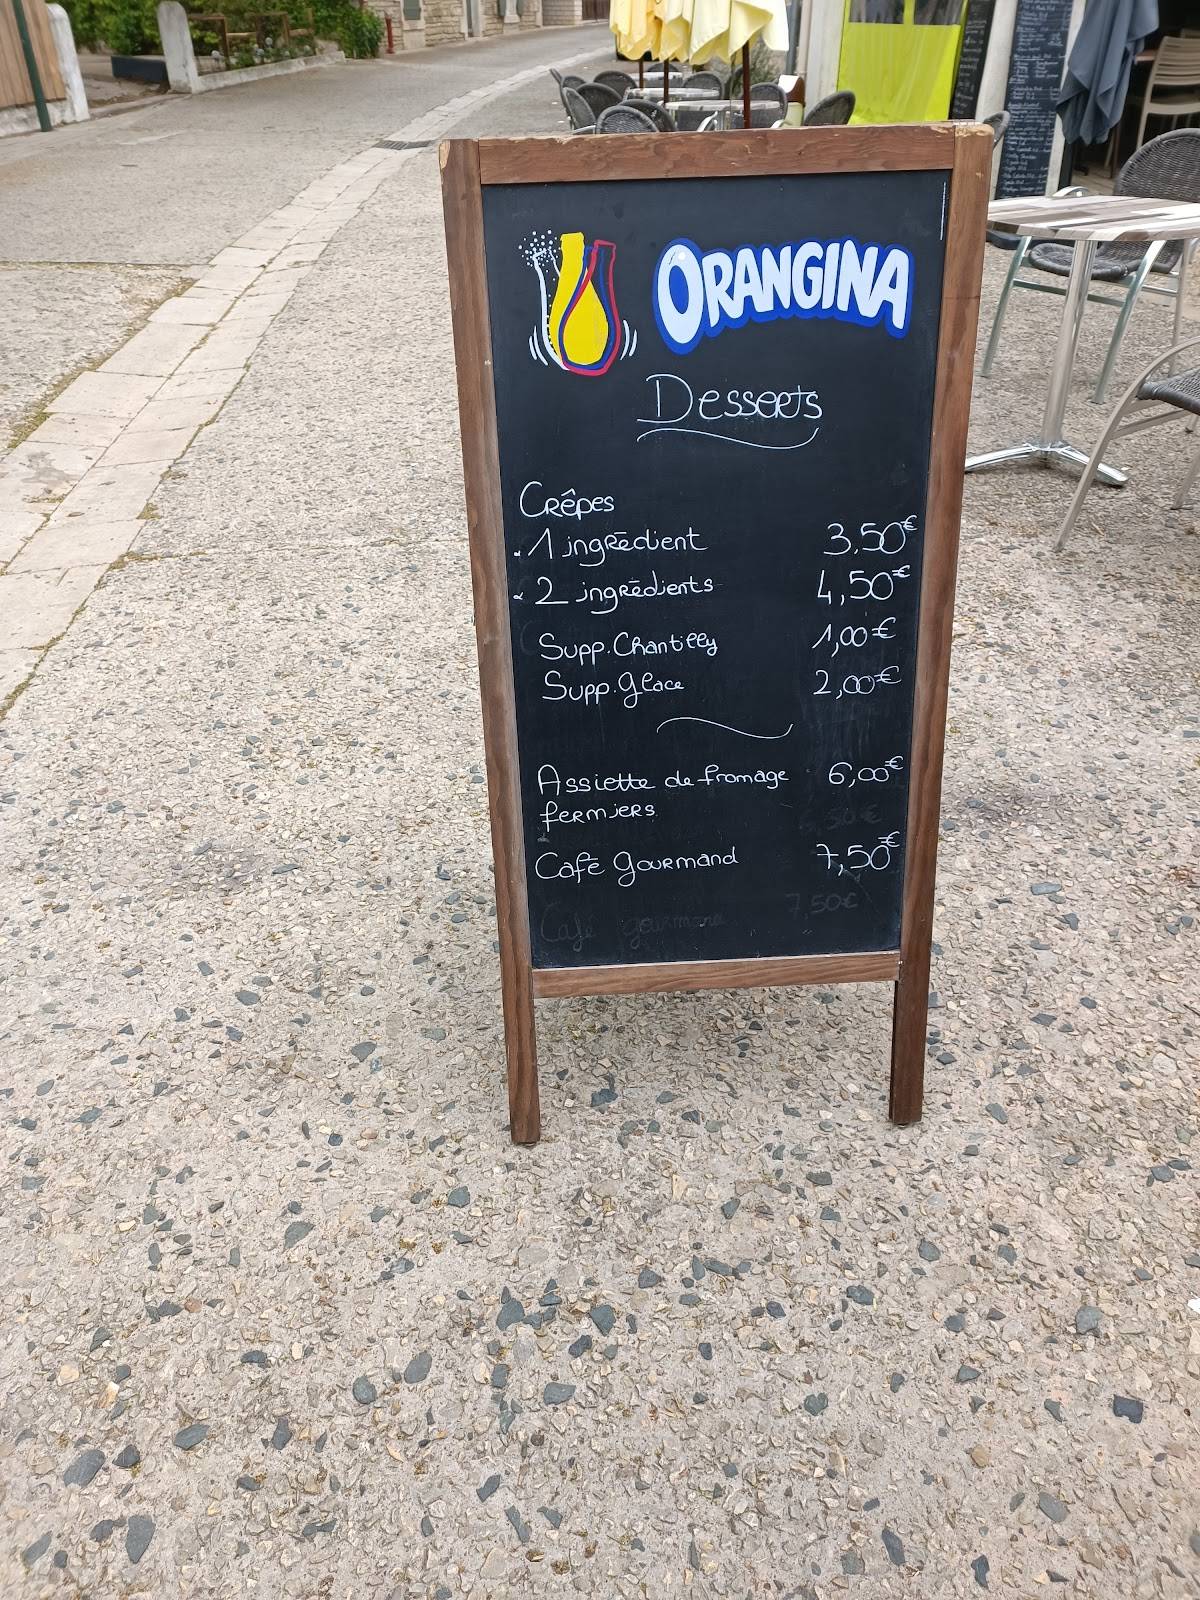 ORANGINA
Desserts
Crêpes
- 1 ingrédient 3.50€
- 2 ingrédients 4,50€
Supp. Chantilly 1,00€
Supp. glace 2,00€
Assiette de fromage 6,00€
fermiers 6,50€
Café gourmand 7,50€
Café gourmand 7,50€